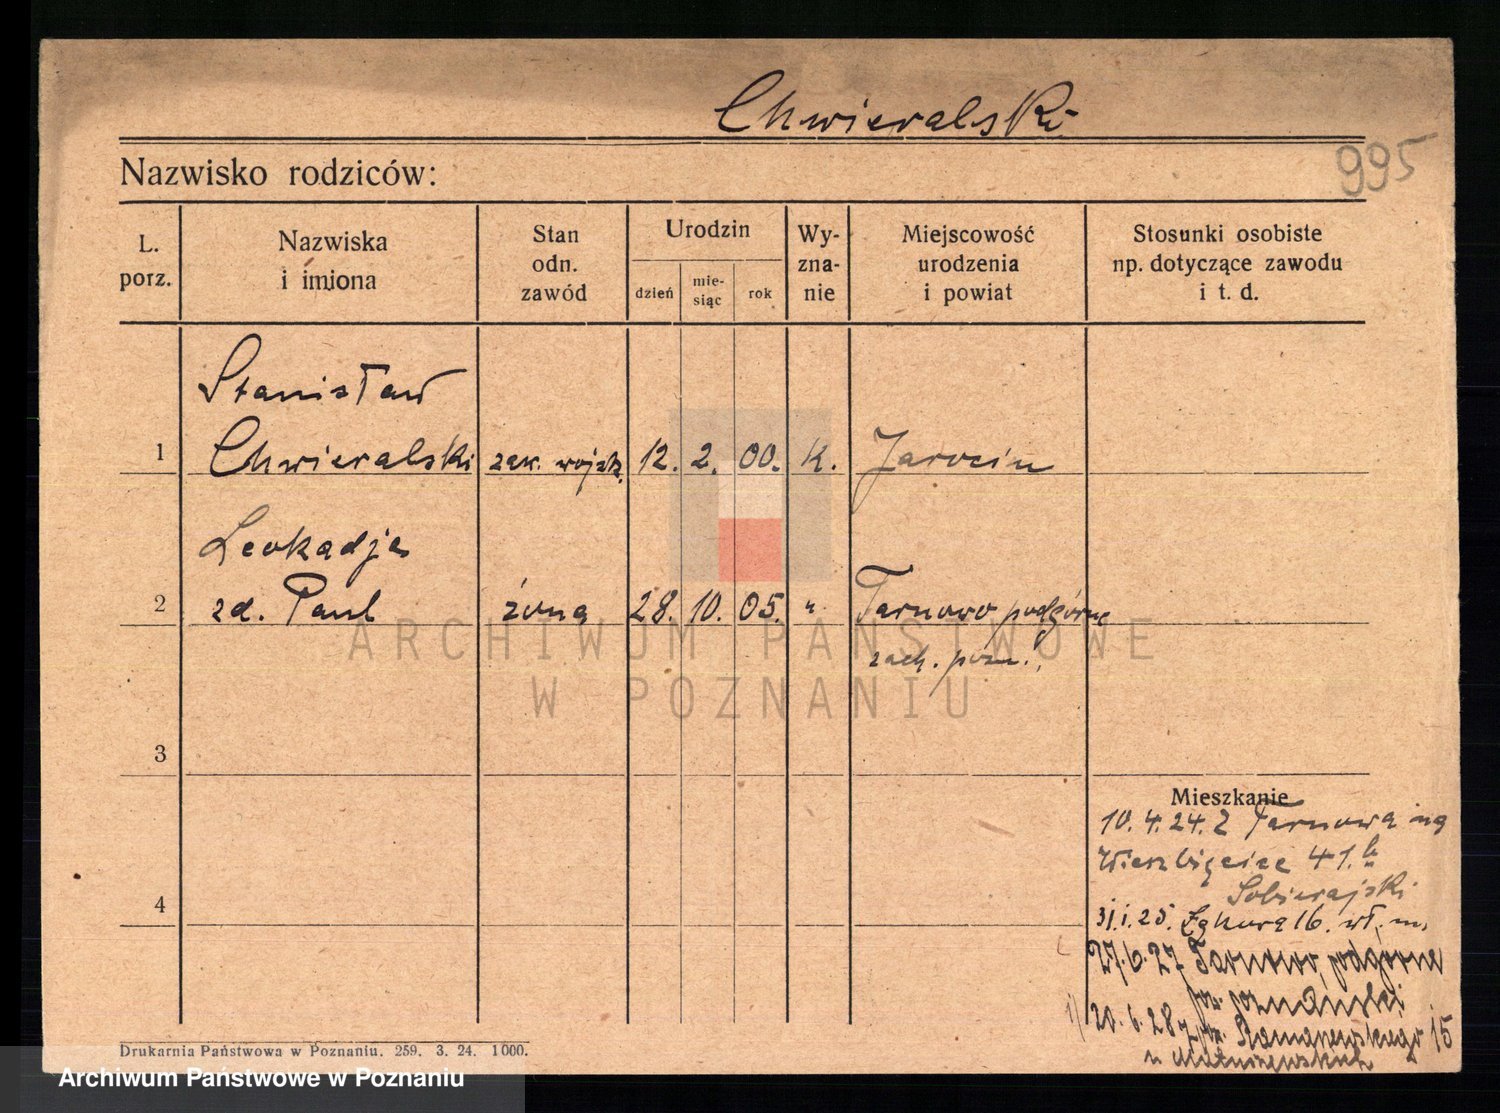 Chwieralski
Nazwisko rodziców:
995
L. porz.
Nazwiska i imiona
Stan odn. zawód
Urodzin
dzień
mie-siąc
rok
Wy-zna-nie
Miejscowość urodzenia i powiat
Stosunki osobiste np. dotyczące zawodu i t. d.
Stanisław
1 Chwieralski zaw. wojsk. 12. 2. 00. K. Jarocin
Leokadja
2 zd. Paul żona 28. 10. 05. " Tarnowo podgórne
zach. pozn.
ARCHIWUM PAŃSTWOWE
W POZNANIU
3
Mieszkanie
10. 4. 24. Z Tarnowa na
Wierzbięcice 41.
4
Sobierajski
31.1.25. Łąkowa 16. wł. m.
27.6.27 Tarnowo podgórne
poznański
20.6.28 15
Drukarnia Państwowa w Poznaniu. 259. 3. 24. 1000.
Archiwum Państwowe w Poznaniu